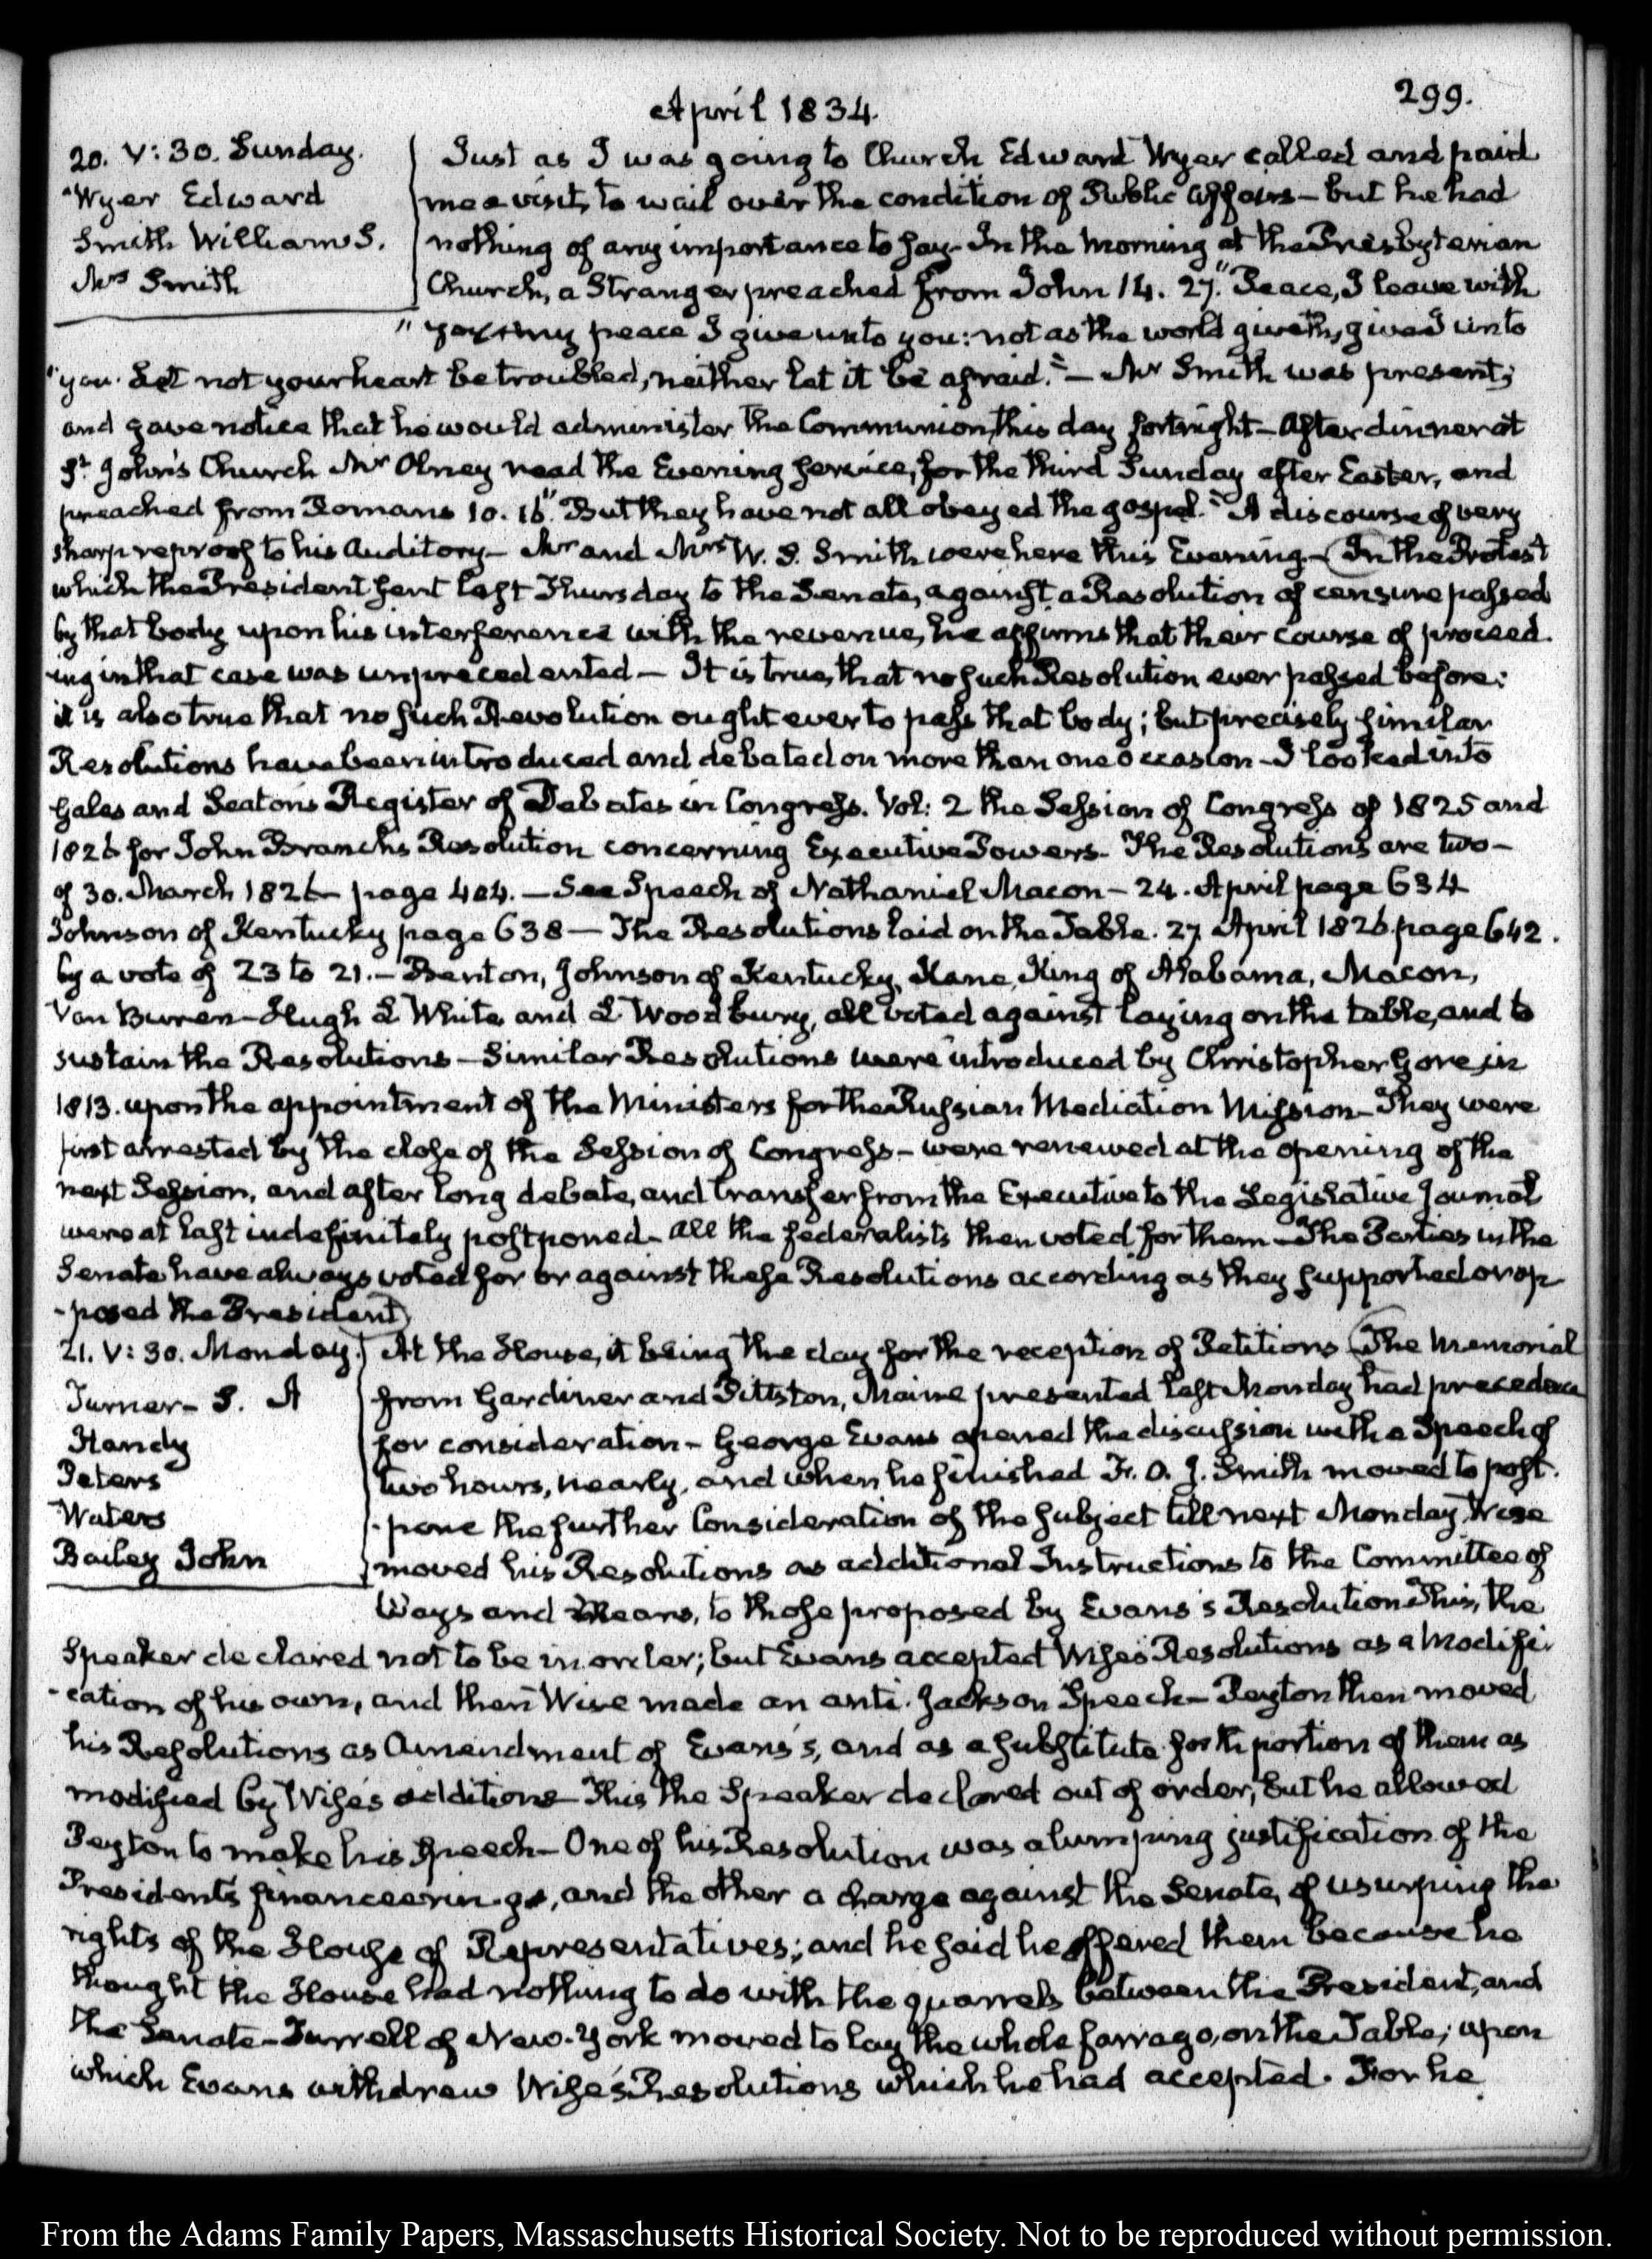 299.
April 1834.
20. V:30. Sunday.
Wyer Edward
Smith William S.
Mrs Smith
Just as I was going to Church Edward Wyer called and paid
me a visit, to wail over the condition of Public Affairs – but he had
nothing of any importance to say – In the morning at the Presbyterian
Church, a Stranger preached from John 14. 27. "Peace, I leave with
" you my peace I give unto you: not as the world giveth, give I unto
"you. Let not your heart be troubled, neither let it be afraid." – Mr Smith was present;
and gave notice that he would administer the Communion, this day fortnight – After dinner at
St John's Church Mr Olney read the Evening service, for the third Sunday after Easter, and
preached from Romans 10. 16. "But they have not all obeyed the gospel." A discourse of very
sharp reproof to his Auditory – Mr and Mrs W. S. Smith were here this Evening – (In the Protest
which the President sent last Thursday to the Senate, against a Resolution of censure passed
by that body upon his interference with the revenue, he affirms that their course of proceed-
ing in that case was unprecedented – It is true, that no such Resolution ever passed before:
it is also true that no such Revolution ought ever to pass that body; but precisely similar
Resolutions have been introduced and debated on more than one occasion – I looked into
Gales and Seaton's Register of Debates in Congress. Vol: 2 the Session of Congress of 1825 and
1826 for John Branch's Resolution concerning Executive Powers – The Resolutions are two –
of 30. March 1826 – page 404. – See Speech of Nathaniel Macon – 24. April page 634
Johnson of Kentucky page 638 – The Resolutions laid on the Table. 27 April 1826. page 642.
by a vote of 23 to 21. – Benton, Johnson of Kentucky, Kane, King of Alabama, Macon,
Van Buren – Hugh L White, and L Woodbury, all voted against laying on the table, and to
sustain the Resolutions – Similar Resolutions were introduced by Christopher Gore, in
1813. upon the appointment of the Ministers for the Russian Mediation Mission – They were
first arrested by the close of the Session of Congress – were renewed at the opening of the
next Session, and after long debate, and transfer from the Executive to the Legislative Journal
were at last indefinitely postponed – All the federalists then voted for them – The Parties in the
Senate have always voted for or against these Resolutions according as they supported or op-
-posed the President)
21. V:30. Monday.
Turner – S. A
Handy
Peters
Waters
Bailey John
At the House, it being the day for the reception of Petitions (The Memorial
from Gardiner and Pittston, Maine presented last Monday had precedence
for consideration – George Evans opened the discussion with a Speech of
two hours, nearly, and when he finished F. O. J. Smith moved to post-
-pone the further Consideration of the subject till next Monday, Wise
moved his Resolutions as additional Instructions to the Committee of
Ways and Means, to those proposed by Evans's Resolution This, the
Speaker declared not to be in order; but Evans accepted Wise's Resolutions as a Modifi-
-cation of his own, and then Wise made an anti-Jackson Speech – Peyton then moved
his Resolutions as Amendment of Evans's, and as a substitute for the portion of them as
modified by Wise's additions – This the Speaker declared out of order; but he allowed
Peyton to make his Speech – One of his Resolution was a lumping justification of the
President's financeerings, and the other a charge against the Senate, of usurping the
rights of the House of Representatives; and he said he offered them because he
thought the House had nothing to do with the quarrels between the President, and
the Senate – Turrell of New-York moved to lay the whole farrago, on the Table; upon
which Evans withdrew Wise's Resolutions which he had accepted. For he
From the Adams Family Papers, Massaschusetts Historical Society. Not to be reproduced without permission.